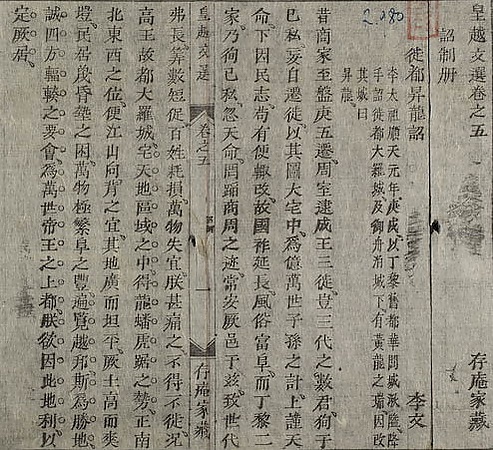 皇越文選卷之五 存庵家藏
詔制册
徙都昇龍詔 李文
李太祖順天元年庚戌以丁黎舊都華閭城湫隘降
手詔徙都大羅城及御舟泊城下有黃龍之瑞因改
其城曰
昇龍
昔商家至盤庚五遷周室逮成王三徙豈三代之數君徇于
己私妄自遷徙以其圖大宅中為億萬世子孫之計上謹天
命下因民志苟有便輒改故國祚延長風俗富阜而丁黎二
家乃徇己私忽天命罔蹈商周之迹常安厥邑于茲致世代
皇越文選 卷之五 一 存庵家藏
弗長筭數短促百姓耗損萬物失宜朕甚痛之不得不徙況
高王故都大羅城宅天地區域之中得龍蟠虎踞之勢正南
北東西之位便江山向背之宜其地廣而坦平厥土高而爽
塏民居蔑昏墊之困萬物極繁阜之豐遍覽越邦斯為勝地
誠四方輻輳之要會為萬世帝王之上都朕欲因此地利以
定厥居